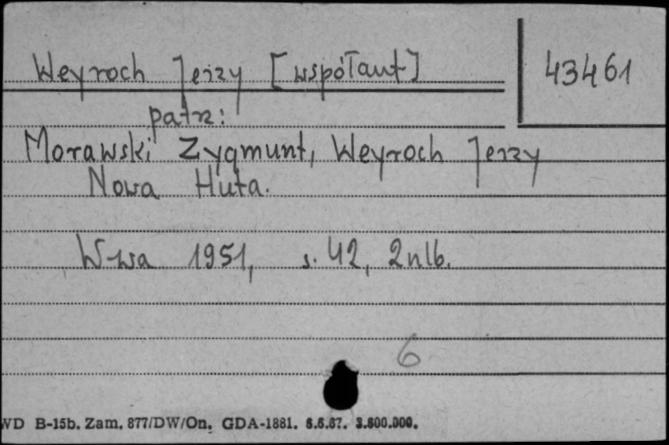 Weyroch Jerzy [współaut]
43461
patrz:
Morawski Zygmunt, Weyroch Jerzy
Nowa Huta.
W-wa 1951, s. 42, 2 nlb.
6
WD B-15b. Zam. 877/DW/On. GDA-1881. 6.6.67. 3.800.000.